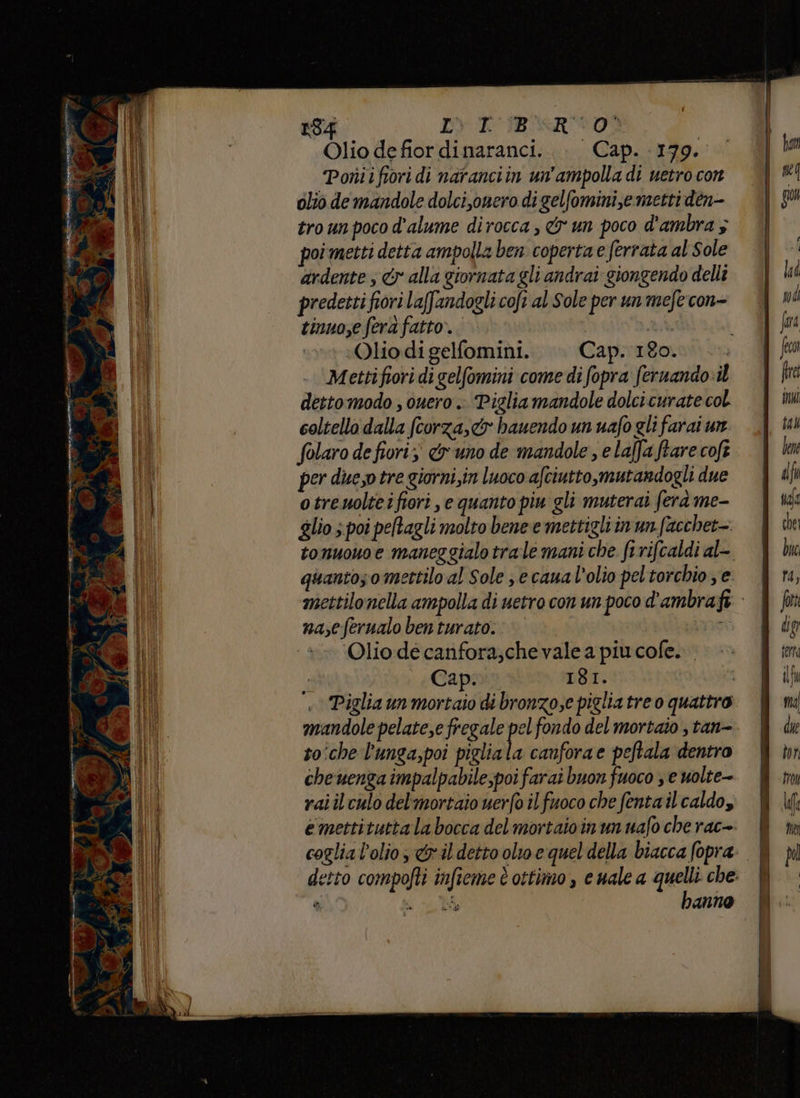 184 L I B R O
Olio de fior di naranci. Cap. 179.
Poni i fiori di naranci in un'ampolla di uetro con
olio de mandole dolci, ouero di gelſomini, e metti den-
tro un poco d'alume di rocca, & un poco d'ambra;
poi metti detta ampolla ben coperta e ſerrata al Sole
ardente, & alla giornata gli andrai giongendo delli
predetti fiori laſſandogli coſi al Sole per un meſe con-
tinuo, e ſerà fatto.
Olio di gelſomini. Cap. 180.
Metti fiori di gelſomini come di ſopra ſeruando il
detto modo, ouero. Piglia mandole dolci curate col
coltello dalla ſcorza, & hauendo un uaſo gli farai un
ſolaro de fiori; & uno de mandole, e laſſa ſtare coſi
per due, o tre giorni, in luoco aſciutto, mutandogli due
o tre uolte i fiori, e quanto piu gli muterai ſerà me-
glio; poi peſtagli molto bene e mettigli in un ſacchet-
to nuouo e maneggialo tra le mani che ſi riſcaldi al-
quanto; o mettilo al Sole, e caua l'olio pel torchio, e
mettilo nella ampolla di uetro con un poco d'ambra fi-
na, e ſerualo ben turato.
Olio de canfora, che vale a piu coſe.
Cap. 181.
Piglia un mortaio di bronzo, e piglia tre o quattro
mandole pelate, e fregale pel fondo del mortaio, tan-
to che l'unga, poi piglia la canfora e peſtala dentro
che uenga impalpabile, poi farai buon fuoco, e uolte-
rai il culo del mortaio uerſo il fuoco che ſenta il caldo,
e metti tutta la bocca del mortaio in un uaſo che rac-
coglia l'olio, & il detto olio e quel della biacca ſopra
detto compoſti inſieme è ottimo, e uale a quelli che
hanno